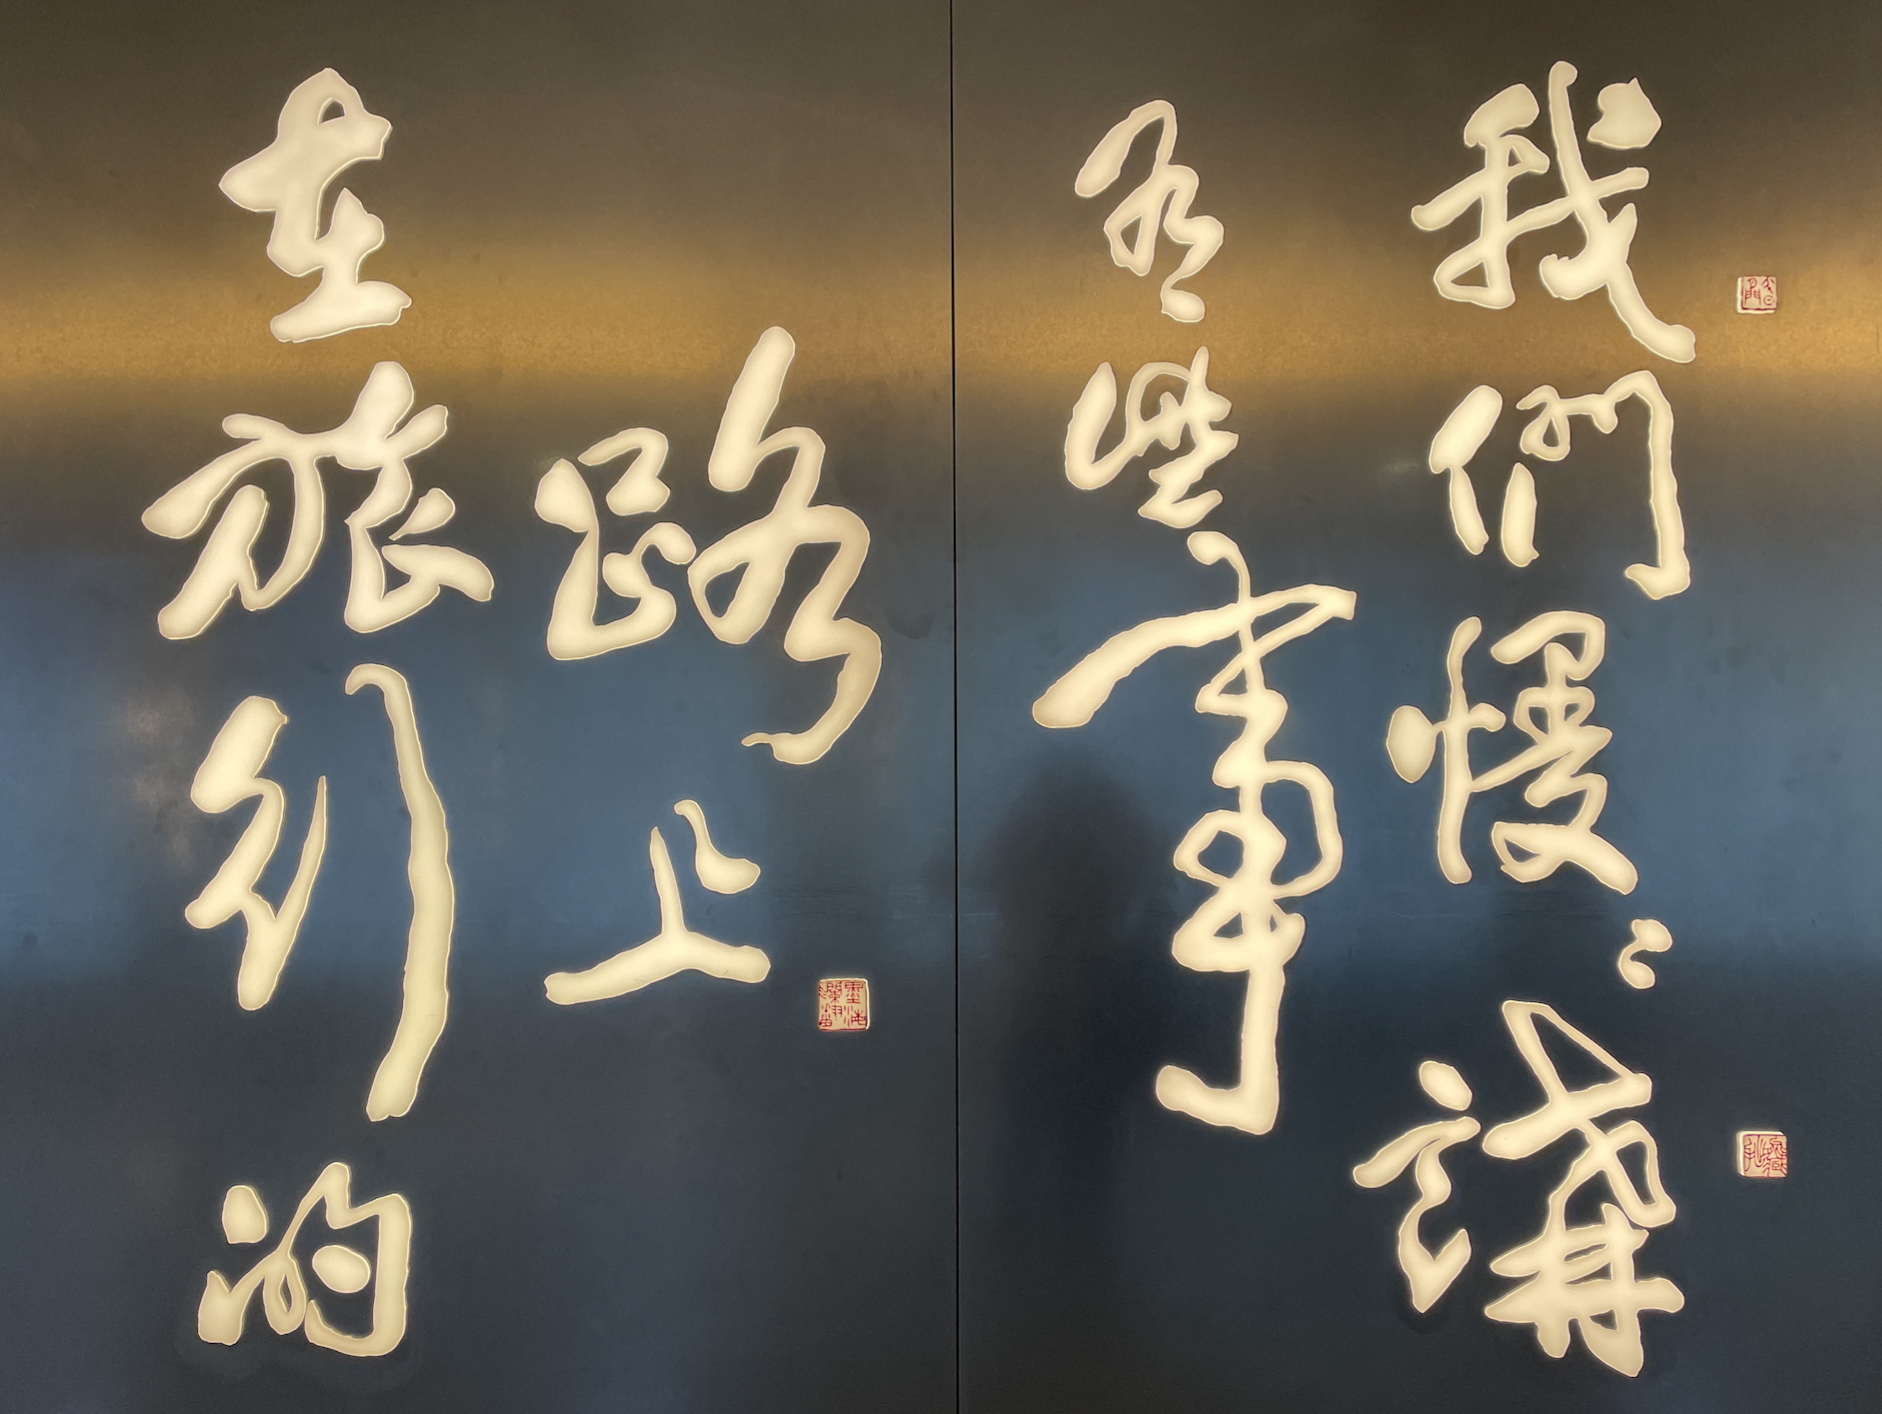 在旅行的
路上
有些事
我們慢々講